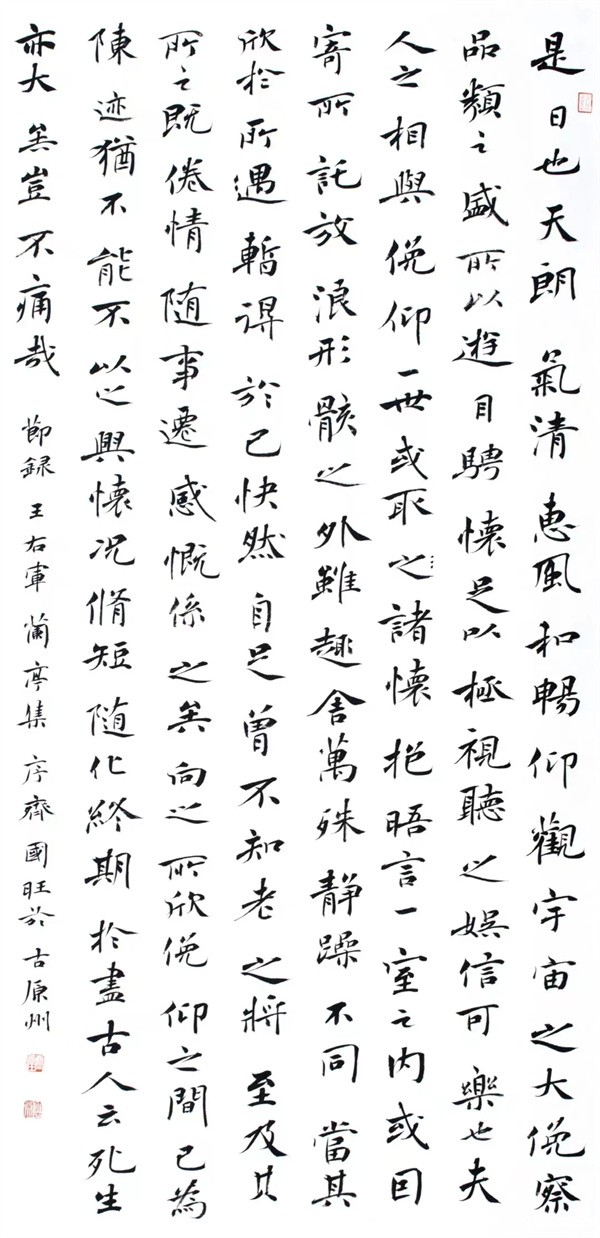 是日也天朗氣清惠風和暢仰觀宇宙之大俛察
品類之盛所以遊目騁懷足以極視聽之娛信可樂也夫
人之相與俛仰一世或取之諸懷抱晤言一室之内或因
寄所託放浪形骸之外雖趣舍萬殊静躁不同當其
欣於所遇暫得於己快然自足曾不知老之將至及其
所之既倦情随事遷感慨係之矣向之所欣俛仰之間已為
陳迹猶不能不以之興懷况脩短随化終期於盡古人云死生
亦大矣豈不痛哉 節録王右軍蘭亭集序齊國旺於古原州